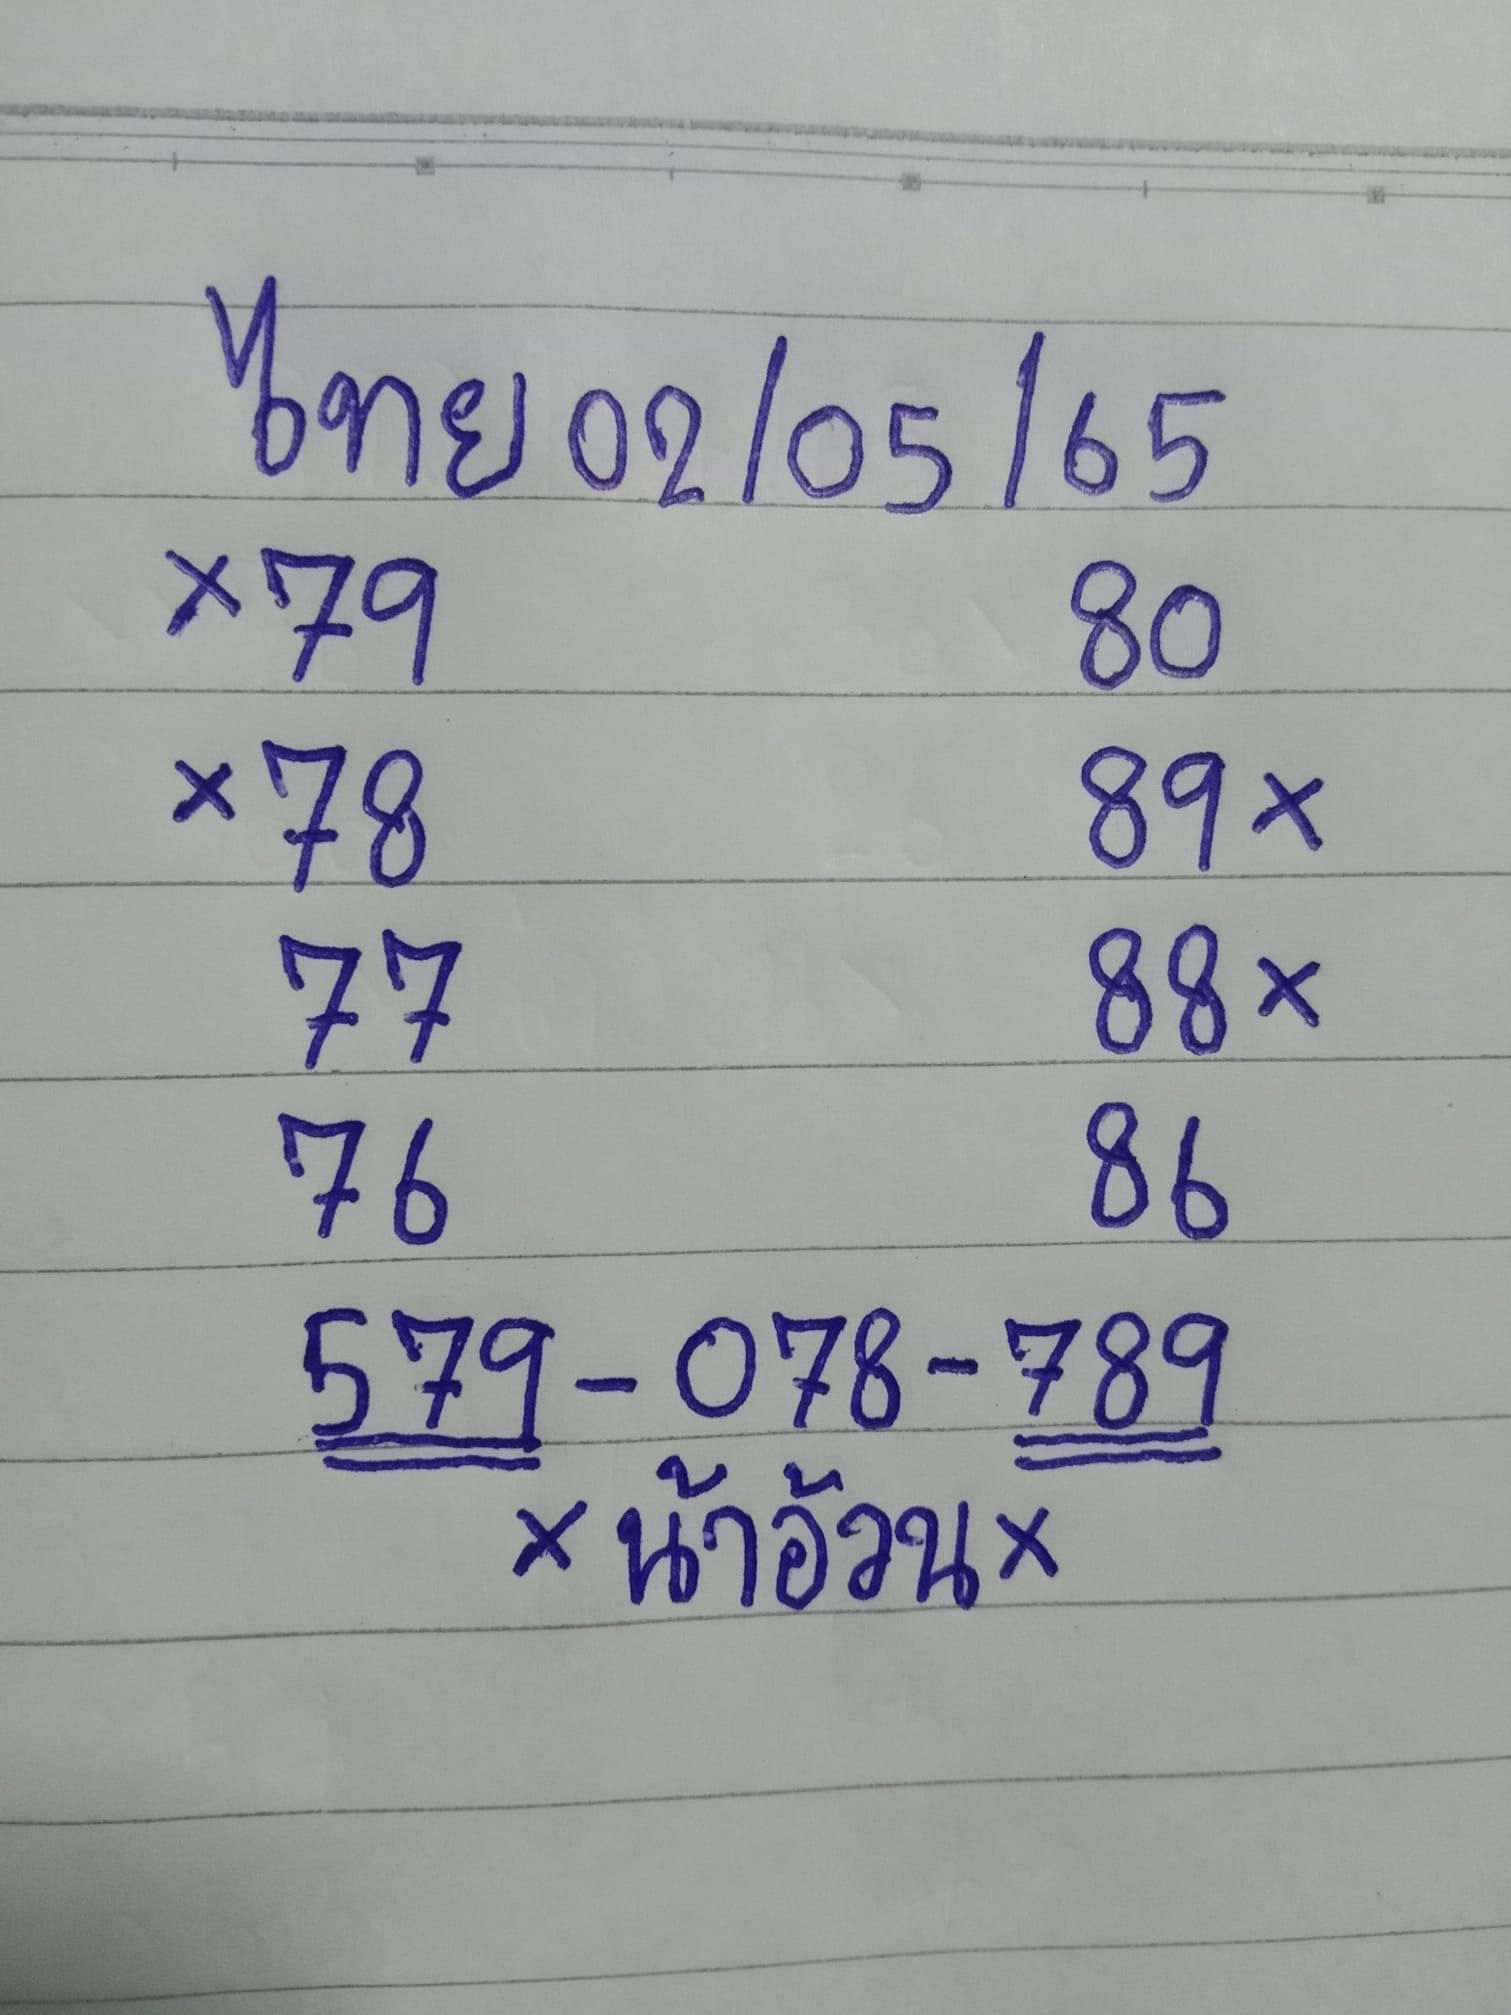 ไทย 02/05/65
×79 80
×78 89×
77 88×
76 86
579-078-789
×น้าอ้วน×